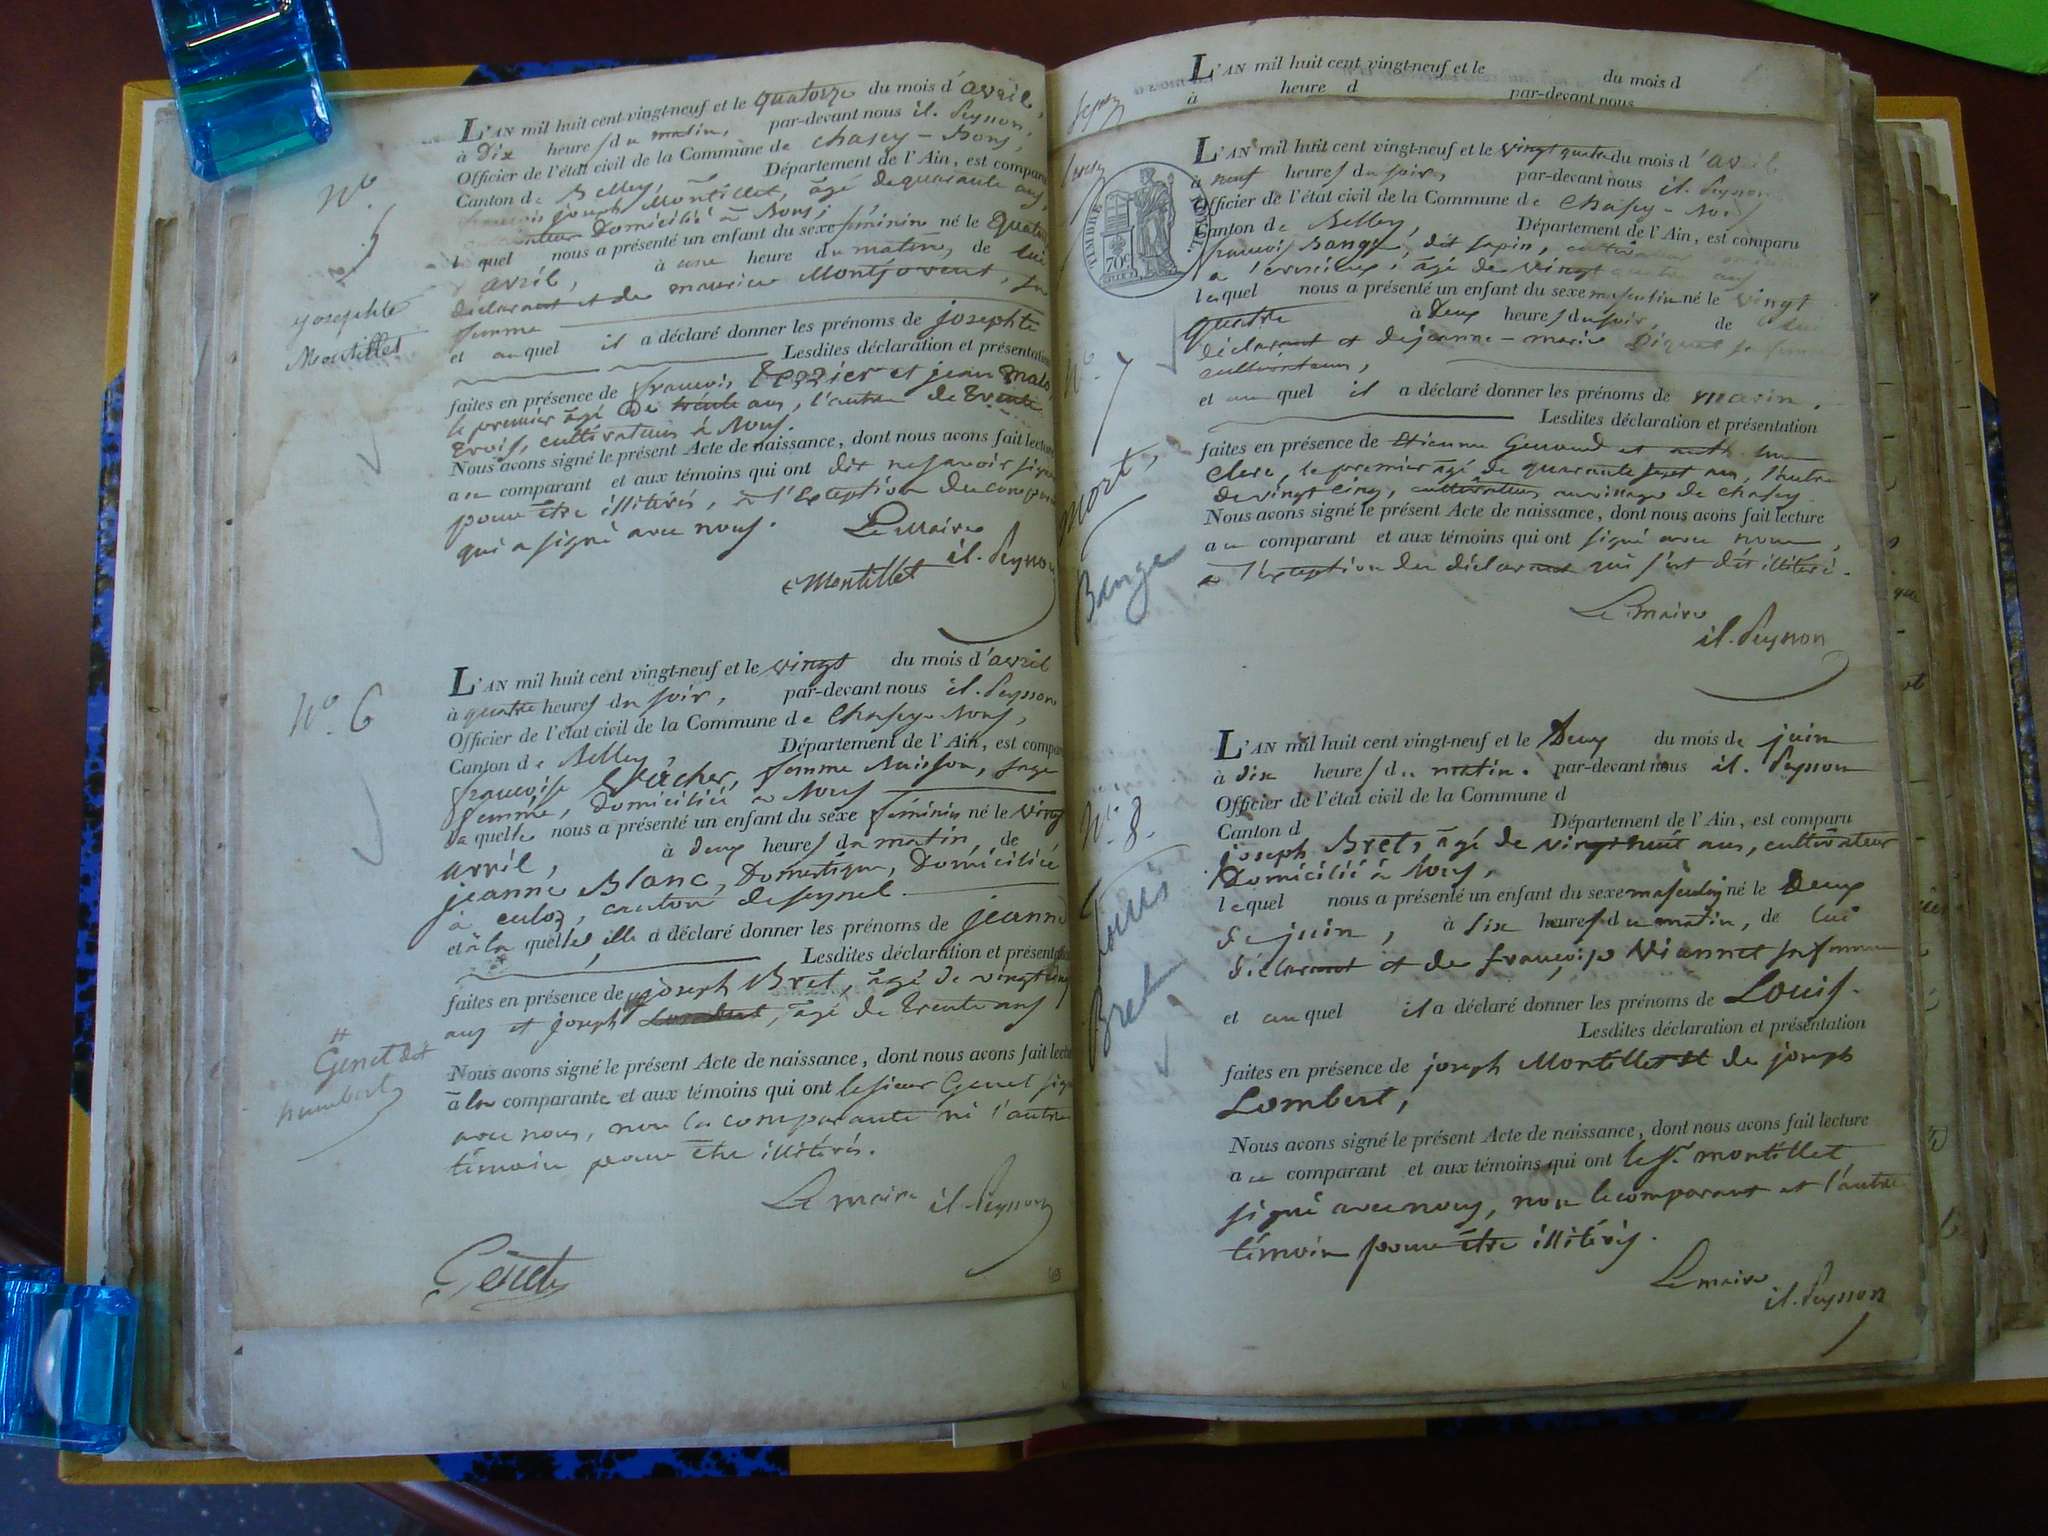 N.o
5
josephte
Montillet
L'AN mil huit cent vingt-neuf et le quatorze du mois d'avril,
à Dix heures du matin, par-devant nous il. Peysson,
Officier de l'état civil de la Commune de Chasey-Bons,
Canton de Belley, Département de l'Ain, est comparu
françois joseph Montillet, âgé de quarante ans,
Domicilié à Bons;
lequel nous a présenté un enfant du sexe féminin né le Quatorze
avril, à une heure du matin, de lui
déclarant et de maurice Montjovent, sa
femme
et auquel il a déclaré donner les prénoms de josephte
Lesdites déclaration et présentation
faites en présence de françois Tezzier et jean
le premier âgé de trente ans, l'autre de trente
trois, cultivateurs à Bons.
Nous avons signé le présent Acte de naissance, dont nous avons fait lecture
au comparant et aux témoins qui ont dit ne savoir signer
pour être illitérés, à l'exeption du comparant
qui a signé avec nous.
Le Maire
il. Peysson
Montillet
N.o 6
L'AN mil huit cent vingt-neuf et le vingt du mois d'avril
à quatre heures du soir, par-devant nous il. Peysson
Officier de l'état civil de la Commune de Chasey-Bons,
Canton de Belley Département de l'Ain, est comparu
françoise femme Buisson, sage
femme, Domiciliée à Bons
laquelle nous a présenté un enfant du sexe féminin né le vingt
avril, à deux heures du matin, de
jeanne Blanc, Domestique, Domiciliée
à culoz, canton de seyssel
et à laquelle, elle a déclaré donner les prénoms de jeanne
Lesdites déclaration et présentation
faites en présence de joseph Bret, âgé de vingt cinq
ans et joseph, âgé de trente ans
Genet dit
humbert
Nous avons signé le présent Acte de naissance, dont nous avons fait lecture
à la comparante et aux témoins qui ont le sieur Genet signé
avec nous, non la comparante ni l'autre
témoin pour être illitérés.
Le maire il. Peysson
Genet
L'AN mil huit cent vingt-neuf et le du mois d
à heure d par-devant nous
TIMBRE ROYAL
70c
N.o 7
Mort,
Bange
L'AN mil huit cent vingt-neuf et le vingt quatre du mois d'avril
à neuf heures du soir, par-devant nous il. Peysson
Officier de l'état civil de la Commune de Chasey-Bons
Canton de Belley, Département de l'Ain, est comparu
françois Bange, dit sapin, cultivateur
âgé de vingt quatre ans
lequel nous a présenté un enfant du sexe masculin né le vingt
quatre à Deux heures du soir, de lui
déclarant et de jeanne-marie Diquet sa femme
cultivateurs,
et auquel il a déclaré donner les prénoms de marin.
Lesdites déclaration et présentation
faites en présence de Etienne Genoud et
Clerc, le premier âgé de quarante sept ans, l'autre
de vingt cinq, cultivateurs au village de Chasey.
Nous avons signé le présent Acte de naissance, dont nous avons fait lecture
au comparant et aux témoins qui ont signé avec nous,
à l'exeption du déclarant qui s'est dit illitéré.
Le maire
il. Peysson
N.o 8.
Louis
Bret
L'AN mil huit cent vingt-neuf et le Deux du mois de juin
à dix heures du matin. par-devant nous il. Peysson
Officier de l'état civil de la Commune d
Canton d Département de l'Ain, est comparu
joseph Bret, âgé de vingt huit ans, cultivateur
Domicilié à Bons,
lequel nous a présenté un enfant du sexe masculin né le Deux
de juin, à six heures du matin, de lui
déclarant et de françoise Viannet sa femme
et auquel il a déclaré donner les prénoms de Louis.
Lesdites déclaration et présentation
faites en présence de joseph Montillet et de joseph
Lombert,
Nous avons signé le présent Acte de naissance, dont nous avons fait lecture
au comparant et aux témoins qui ont le sr. montillet
signé avec nous, non le comparant et l'autre
témoin pour être illitérés.
Le maire
il. Peysson